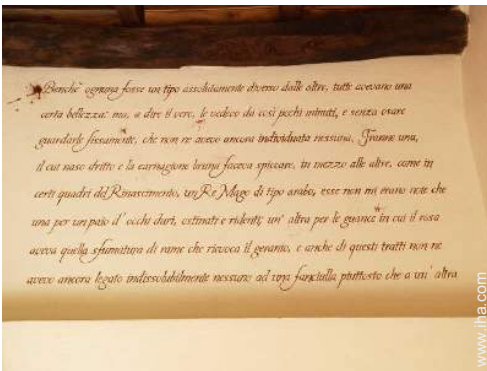 Benchè ognuna fosse un tipo assolutamente diverso dalle altre, tutte avevano una
certa bellezza: ma, a dire il vero, le vedevo da così pochi minuti, e senza osare
guardarle fissamente, che non ne avevo ancora individuata nessuna. Tranne una,
il cui naso dritto e la carnagione bruna faceva spiccare, in mezzo alle altre, come in
certi quadri del Rinascimento, un Re Mago di tipo arabo, esse non mi erano note che
una per un paio d' occhi duri, ostinati e ridenti; un' altra per le guance in cui il rosa
aveva quella sfumatura di rame che rievoca il geranio, e anche di questi tratti non ne
avevo ancora legato indissolubilmente nessuno ad una fanciulla piuttosto che a un' altra
www.iha.com